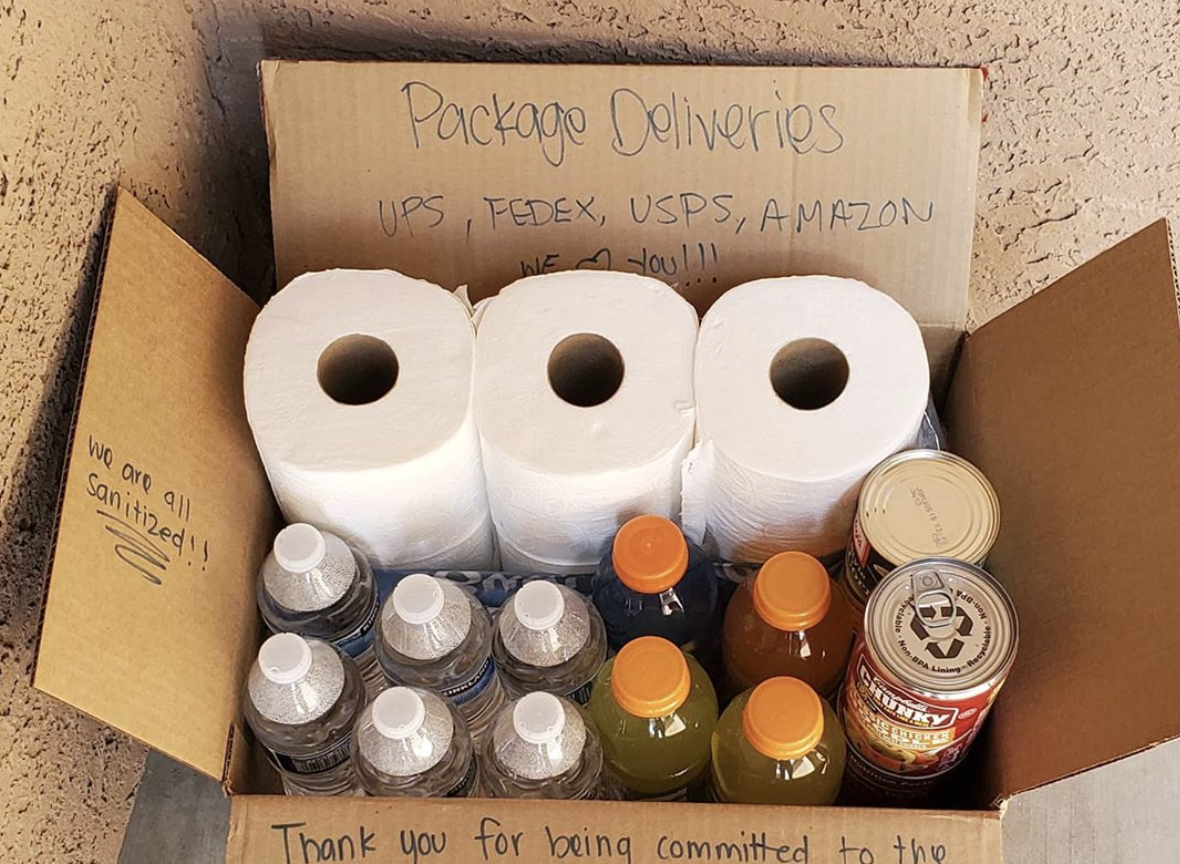 Package Deliveries
UPS, FEDEX, USPS, AMAZON
WE ♡ YOU!!!
we are all
Sanitized!!
KIRKLAND
Recyclable • Non-BPA Lining • Recyclable • Non-BPA
Campbell's
CHUNKY
CHICKEN
Thank you for being committed to the